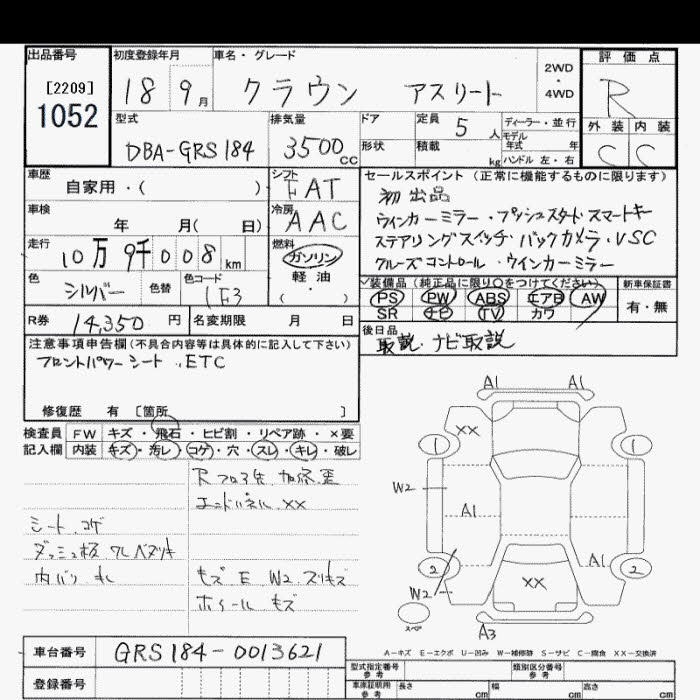 出品番号 初度登録年月 車名・グレード 2WD・4WD 評価点
[2209]
1052
18 9月 クラウン アスリート R
型式 排気量 ドア 定員 5人 ディーラー・並行 外装 内装
DBA-GRS184 3500cc 形状 積載 kg モデル年式 年 C C
ハンドル 左・右
車歴 自家用・( ) シフト FAT セールスポイント (正常に機能するものに限ります)
初出品
車検 年 月( 日) 冷房 AAC ウインカーミラー・プッシュスタート スマートキー
走行 10万9千008km 燃料 ガソリン ステアリングスイッチ・バックカメラ・VSC
軽油 クルーズコントロール・ウインカーミラー
色 シルバー 色替 色コード 1F3 ・( ) 装備品 (純正品に限り○をつけてください) 新車保証書
PS PW ABS エアB AW 有・無
SR ナビ TV カワ
R券 14,350円 名変期限 月 日 後日品
取説、ナビ取説
注意事項申告欄(不具合内容等は具体的に記入して下さい)
フロントパワーシート、ETC
修復歴 有 [箇所 ]
検査員 FW キズ・飛石・ヒビ割・リペア跡・×要
記入欄 内装 キズ・汚レ・コゲ・穴・スレ・キレ・破レ
エンドパネル XX
シート コゲ
内バリ キレ
キズ E W2 スリキズ
ホイール キズ
A1 A1
XX
1 1
W2
A1
A1
2 2
W2 XX
スペア
A3
A-キズ E-エクボ U-凹み W-補修跡 S-サビ C-腐食 XX-交換済
車台番号 GRS184-0013621
型式指定番号 参考 類別区分番号 参考
登録番号 車庫証明用 参考 長さ cm 幅 cm 高さ cm